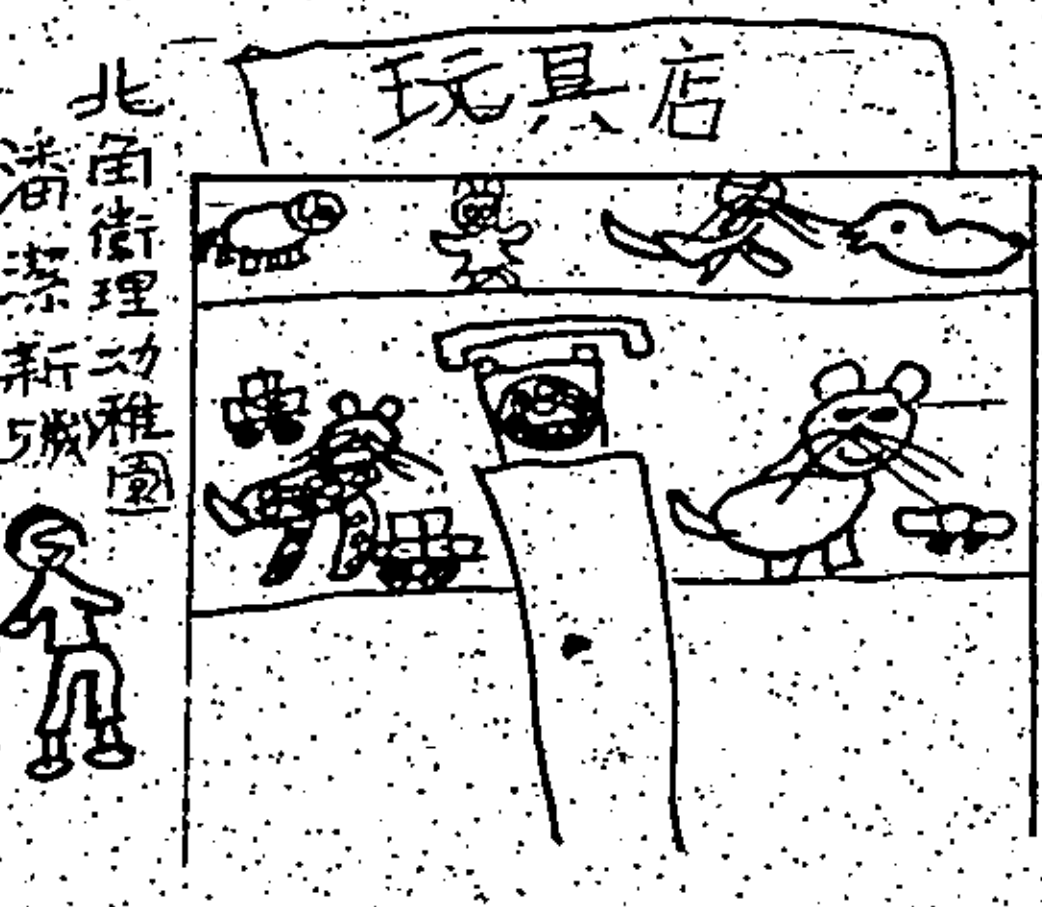 玩具店
北角衛理幼稚園
潘潔新
5歲